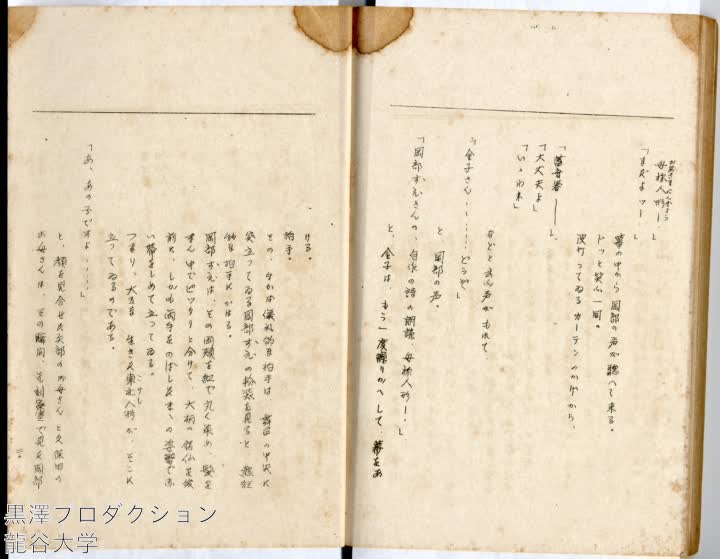 お母さまにんぎょう
母様人形ー」
「まだよッー」
幕の中から岡部の声が聴へて来る。
ドッと笑ふ一同。
波打ってゐるカーテンのかげから、
「蓄音器ー」
「大丈夫よ」
「いゝわネ」
などと云ふ声がもれて、
「金子さん………どうぞ」
と 岡部の声。
「岡部ずゑさんの、自作の詩の朗読、母様人形ー。」
と、金子は、もう一度繰りかへして、幕をあ
ける。
拍手。
その、なかば儀礼的な拍手は、舞台の中央に
突立ってゐる岡部ずゑの扮装を見ると、熱狂
的な拍手にかはる。
岡部ずゑは、その両頬を紅で丸く染め、髪を
まん中でピッタリと分けて、大柄の銘仙を
前に、しかも両手をのばしたまゝの姿勢で赤
い帯をしめて立ってゐる。
つまり、大きな 生きた東北人形が、そこに
立ってゐるのである。
「あ、あの子ですよ……」
と、顔を見合せた お母さんと久保田の
お母さんは、その瞬間、先刻 で見た岡部
黒澤プロダクション
龍谷大学